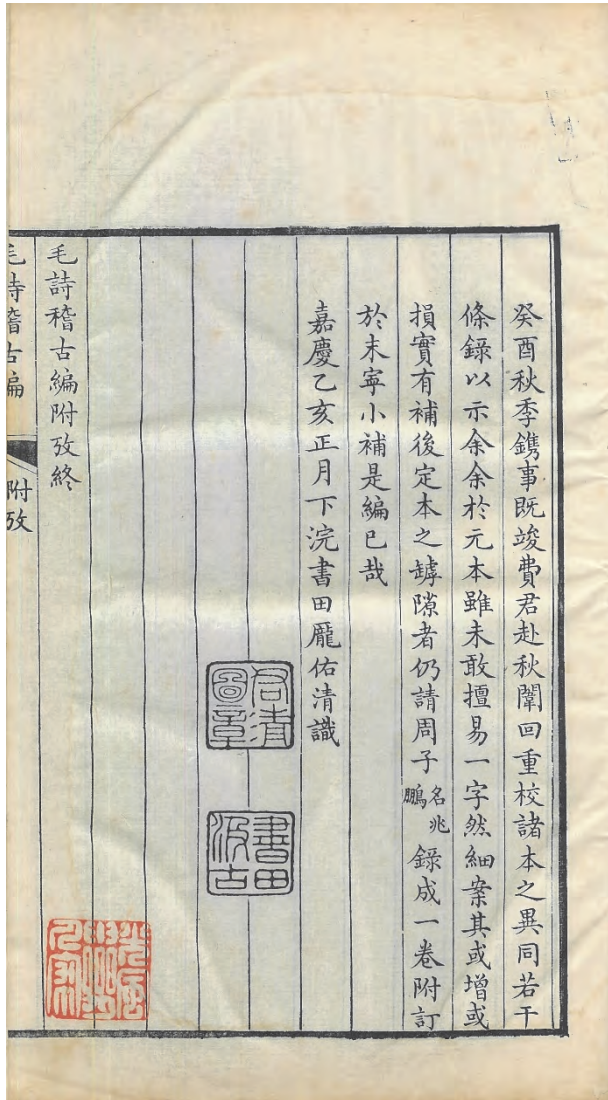 癸酉秋季鐫事既竣費君赴秋闈回重校諸本之異同若干
條錄以示余余於元本雖未敢擅易一字然細案其或增或
損實有補後定本之罅隙者仍請周子名兆鵬錄成一卷附訂
於末寧小補是編已哉
嘉慶乙亥正月下浣書田龎佑清識
書田
毛詩稽古編附攷終
毛詩稽古編
附攷